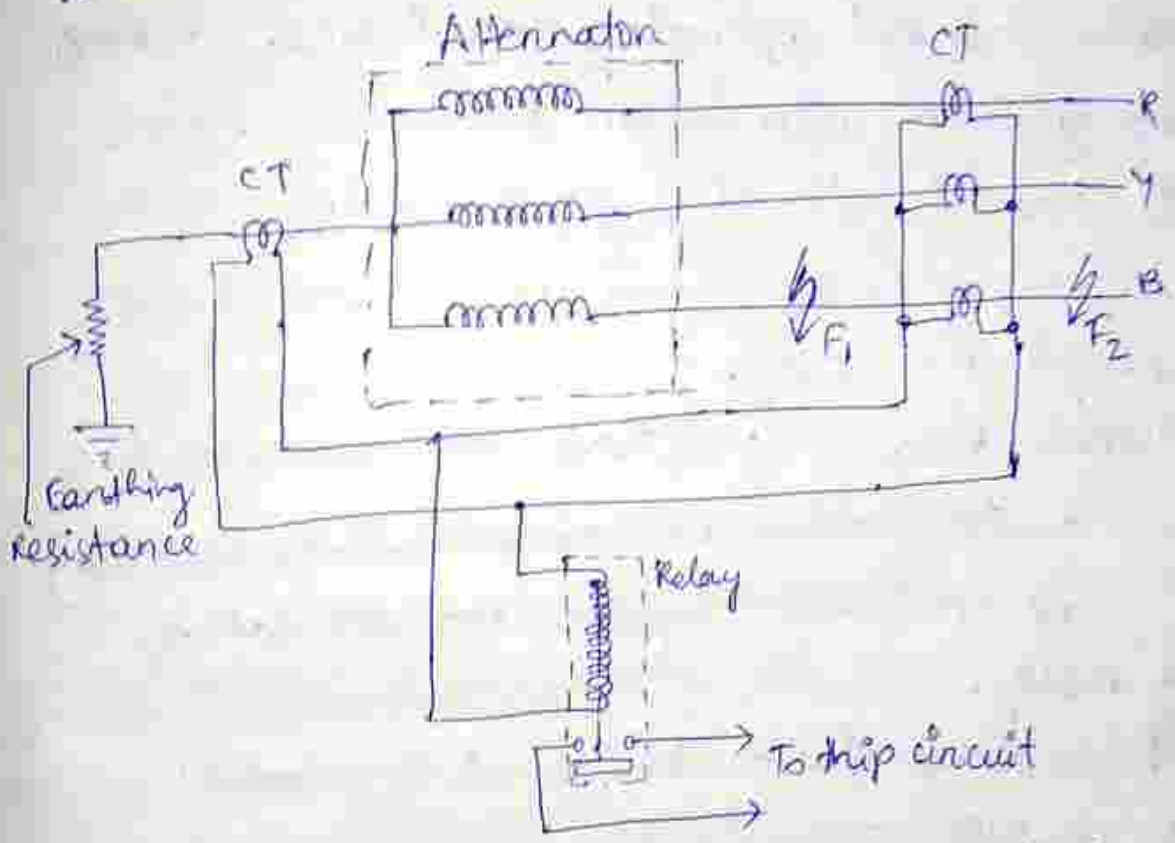 Alternator
CT
CT
R
Y
B
F1
F2
Earthing
resistance
Relay
To trip circuit